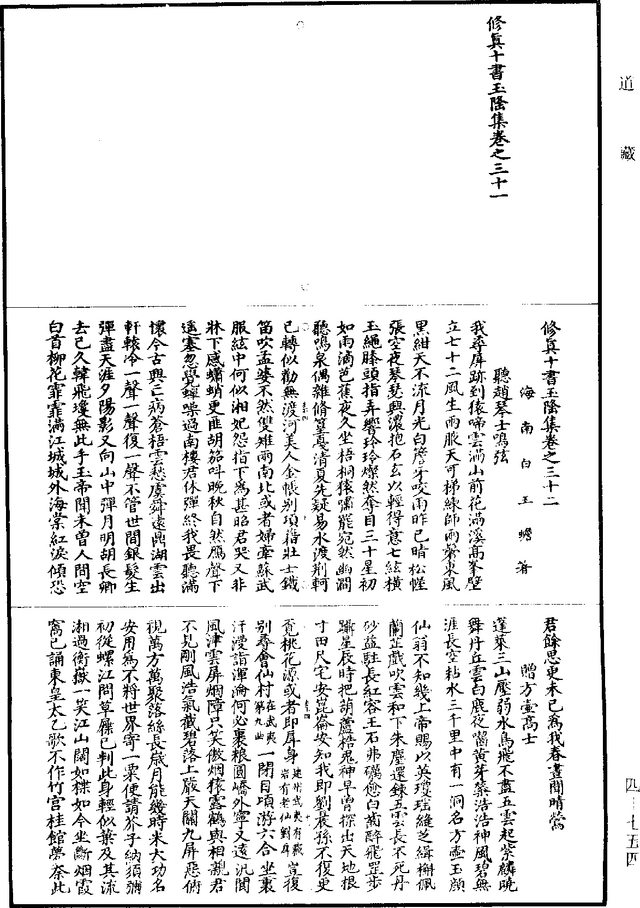 道藏
修真十書玉隆集卷之三十一
修真十書玉隆集卷之三十二
海南白玉蟾著
聽趙琴士鳴弦
我尋屏跡到猿啼雲滿山前花滿溪高峯壁
立七十二風生兩腋天可梯練師兩鬢東風
黑紺天不流月光白簷牙咬雨昨已晴松惺
張空夜琴瑟興濃抱石玄以輕得意七絃橫
玉繩膝頭指弄響玲玲燦然奪目三十星初
如雨滴芭蕉夜久坐梧桐猿嘯罷宛然幽澗
聽鳴泉偶雜脩篁戞清夏先疑易水渡荆軻
已轉似勸無渡河美人金帳别項籍壯士鐵
笛吹孟婆不然雙雉兩南北或者婦牽蘇武
服絃中何似湘妃怨指下爲甚昭君哭又非
牀下感蟏蛸更匪胡笳叫晚秋自然鴈聲下
遥塞忽覺蟬噪過南樓君休彈終我畏聽滿
懷今古興亡病蒼梧雲愁虞舜遠鼎湖雲出
軒轅冷一聲一聲復一聲不管世間銀髮生
彈盡天涯夕陽影又向山中彈月明胡長卿
去已久韓飛瓊無此手玉帝聞未曽人間空
白首柳花霏霏滿江城城外海棠紅淚傾恐
君餘思更未已爲我春晝閒啼鶯
贈方壺高士
蓬萊三山壓弱水鳥飛不盡五雲起紫麟曉
舞丹丘雲白鹿夜嚙黃芽蘂浩浩神風碧無
涯長空粘水三千里中有一洞名方壺玉顔
仙翁不知幾上帝賜以英瓊瑶縫芝緝槲佩
蘭芷戲吹雲和下朱塵還鍊五雲長不死丹
砂益駐長紅容玉石弗礪愈白齒醉罷罡步
躡星辰時把葫蘆搭鬼神早曽探出天地根
寸田尺宅安崑崙安知我即劉晨孫不復更
覔桃花源或者即屏身建州武夷有藏岩有老仙劉屏豈復
别尋會仙村在武夷第九曲一閉目頃游六合坐裏
汗漫詣渾淪何必裹粮圓嶠外寧又遠汎閬
風津雲屏烟障只笑傲烟猿雲鶴與相親君
不見剛風浩氣截碧落上嚴天關九屏惡俯
視萬方萬聚落絲長歲月能幾時米大功名
安用爲不將世界寄一粟便請芥子納須彌
初從螺江問草屩已判此身輕似葉及其流
湘過衡嶽一笑江山闊如楪如今坐斷烟霞
窩已誦東皇太乙歌不作竹宮桂館夢奈此
四-七五四